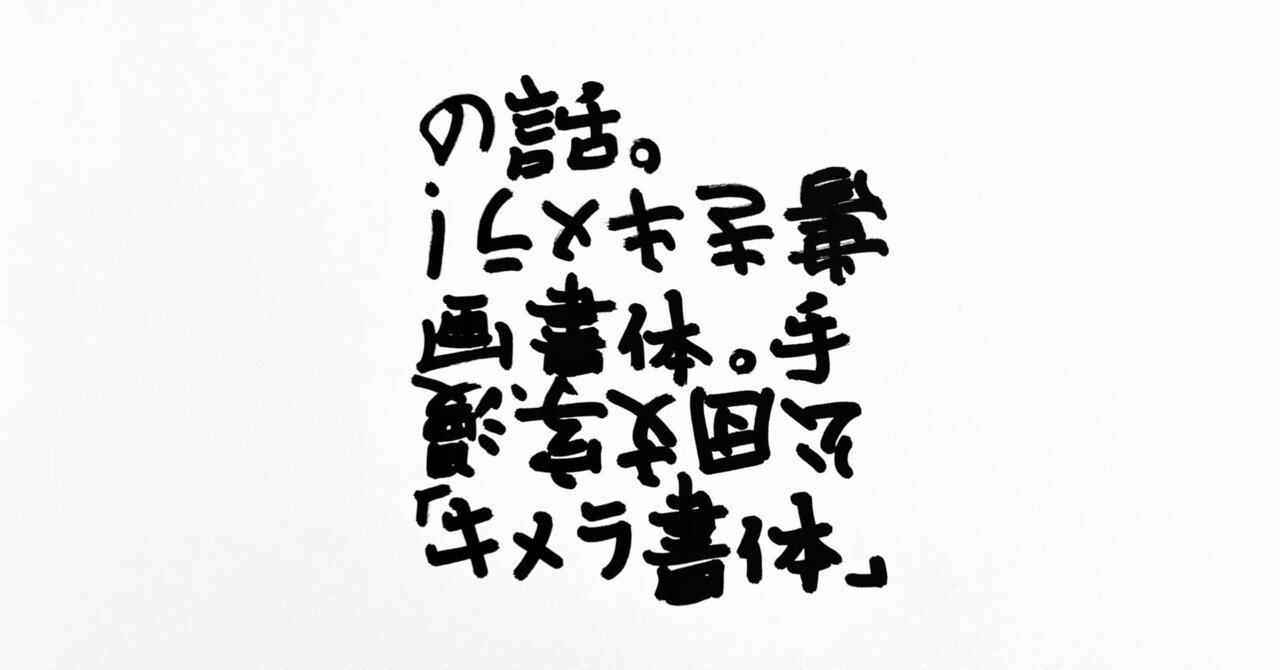 「キメラ書体」
公団文字漫
画書体。手
書きキメラ!
の話。